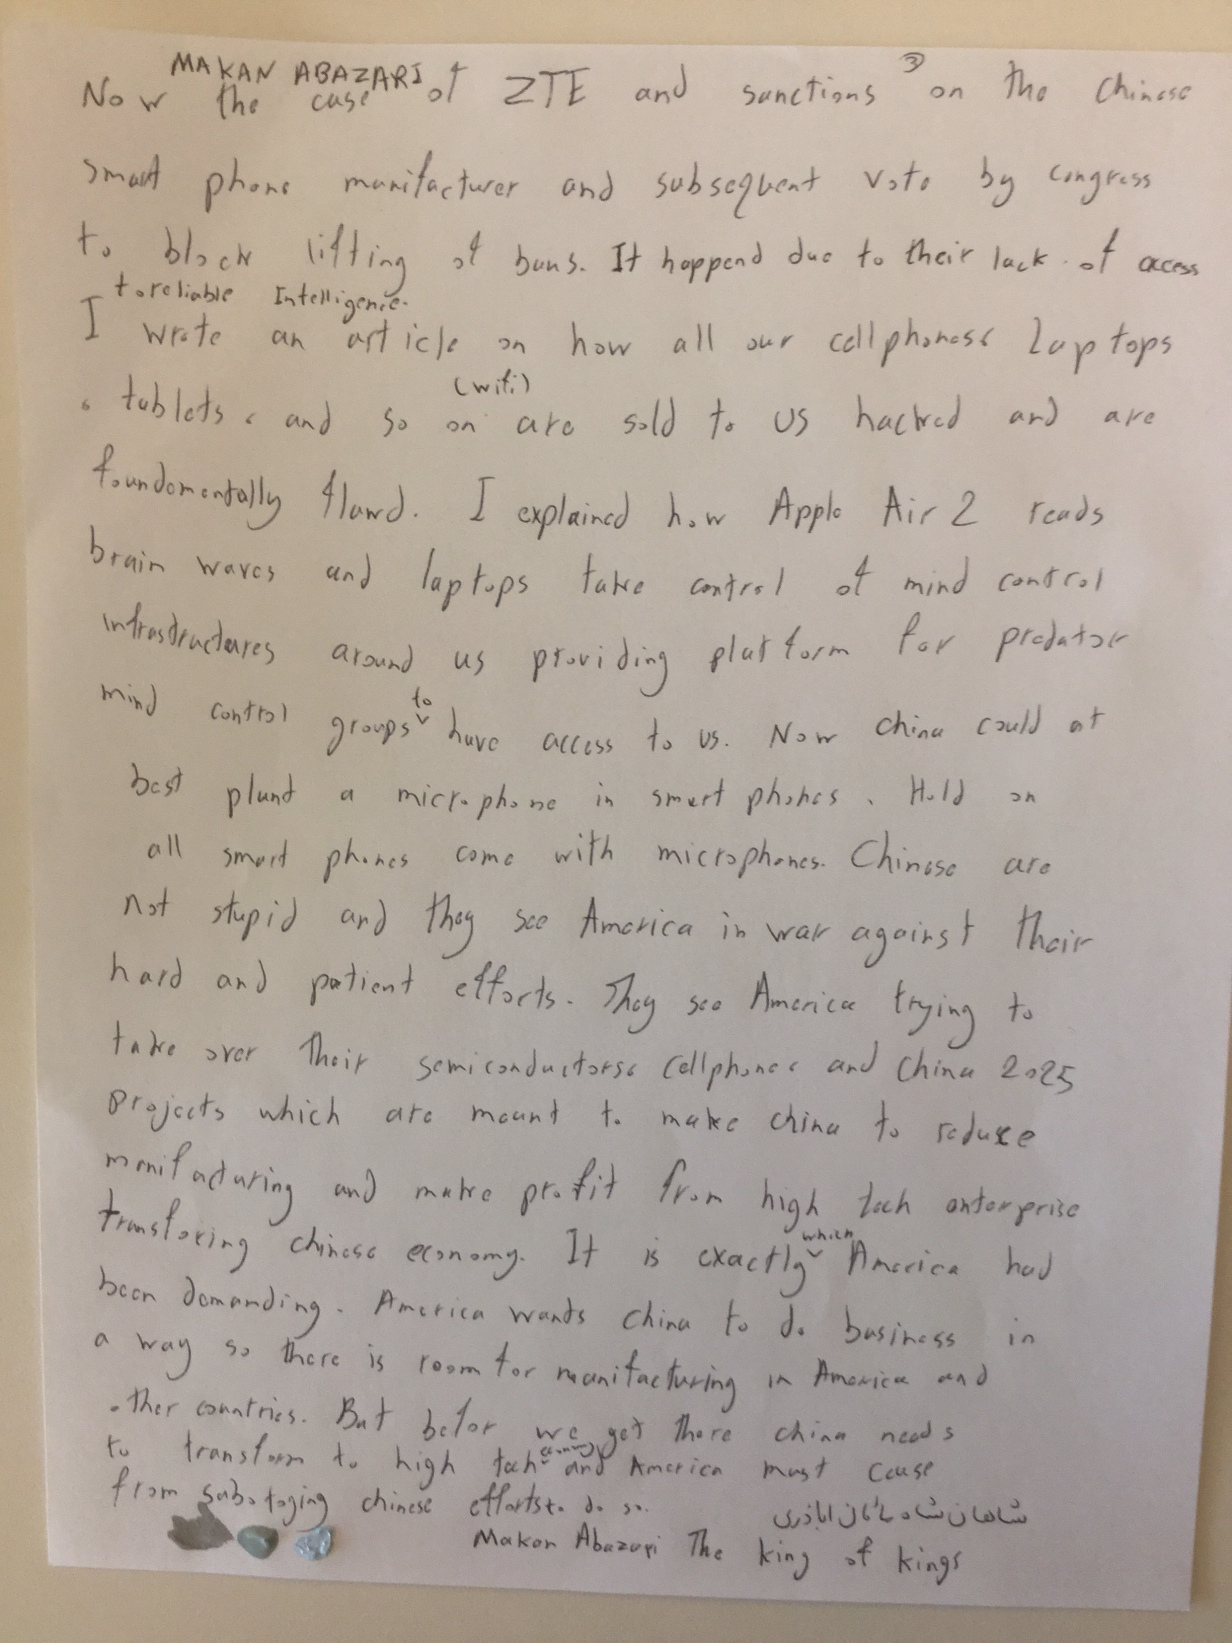 MAKAN ABAZARI ③
Now the case of ZTE and sanctions on the chinese
smart phone manifacturer and subsequent vote by congress
to block lifting of bans. It happend due to their lack of access
to reliable Intelligence.
I wrote an article on how all our cellphones، laptops
، tablets، and so on (wifi) are sold to us hacked and are
foundomentally flawd. I explained how Apple Air 2 reads
brain waves and laptops take control of mind control
infrastructures around us providing platform for predator
mind control groups to have access to us. Now china could at
best plant a microphone in smart phones. Hold on
all smart phones come with microphones. Chinese are
not stupid and they see America in war against their
hard and patient efforts. They see America trying to
take over their semiconductors، cellphone، and China 2025
projects which are meant to make china to reduce
manifacturing and make profit from high tech enterprise
transforing chinese economy. It is exactly which America had
been demanding. America wants china to do business in
a way so there is room for manifacturing in America and
other countries. But befor we get there china needs
to transform to high tech and America must cease
from sabotaging chinese efforts to do so.
شاهان شاه ماکان اباذری
Makan Abazari The king of kings